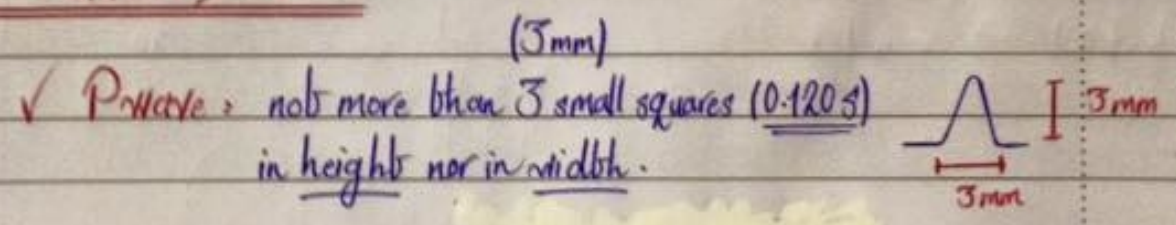 (3mm)
✓ P wave: not more than 3 small squares (0.120s)
in height nor in width.
3mm
3mm